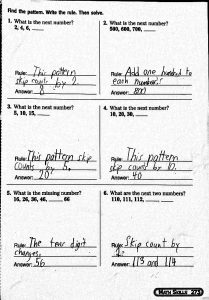 Find the pattern. Write the rule. Then solve.
1. What is the next number?
2, 4, 6, ____
Rule: This pattern
skip count by 2.
Answer: 8
2. What is the next number?
500, 600, 700, ____
Rule: Add one hundred to
each number.
Answer: 800
3. What is the next number?
5, 10, 15, ____
Rule: This pattern skip
counts by 5.
Answer: 20
4. What is the next number?
10, 20, 30, ____
Rule: This pattern
skip count by 10.
Answer: 40
5. What is the missing number?
16, 26, 36, 46, ____ 66
Rule: The tens digit
changes.
Answer: 56
6. What are the next two numbers?
110, 111, 112, ____, ____
Rule: Skip count by
1.
Answer: 113 and 114
273